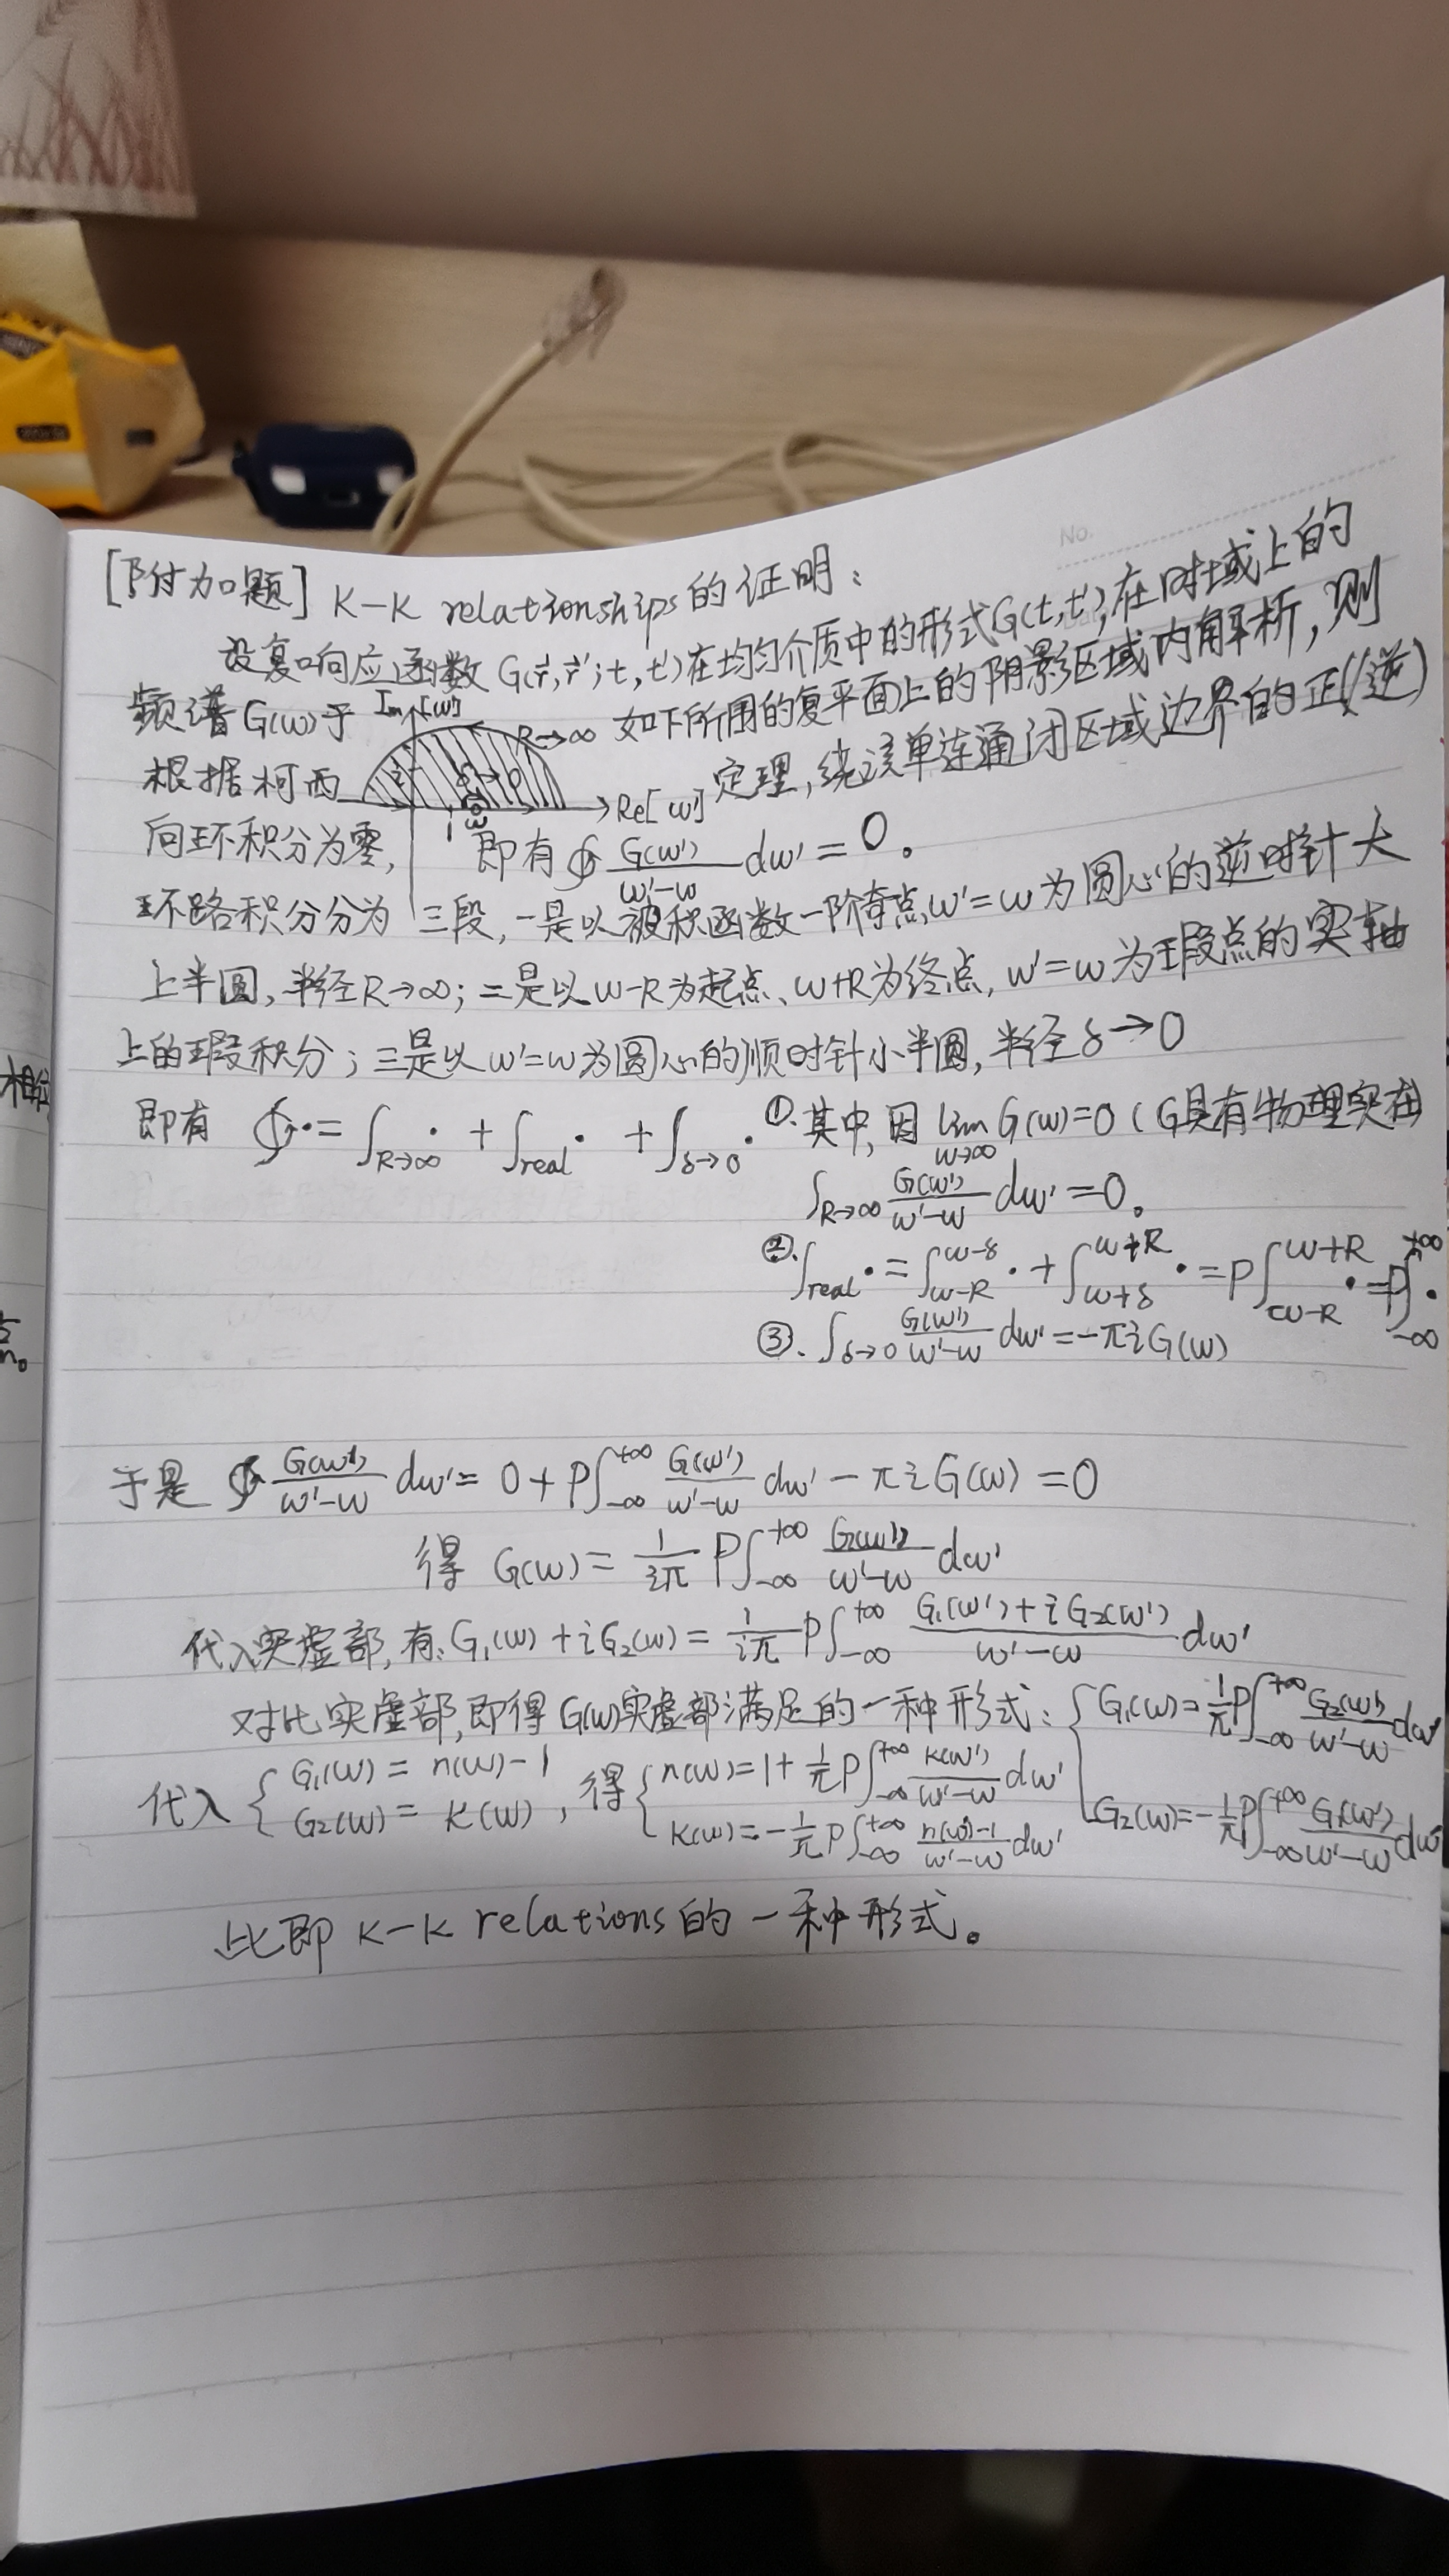 No.
[附加题] K-K relationships的证明:
设复响应函数 G(r⃗,r⃗';t,t')在均匀介质中的形式G(t,t'),在时域上的
频谱G(ω)于 Im[ω] R→∞ 如下所围的复平面上的阴影区域内解析,则
根据柯西 ω Re[ω] 定理,绕该单连通闭区域边界的正(逆)
向环积分为零, 即有 ∮ G(ω')/(ω'-ω) dω' = 0。
环路积分分为 三段,一是以被积函数一阶奇点ω'=ω为圆心的逆时针大
上半圆,半径R→∞;二是以ω-R为起点、ω+R为终点,ω'=ω为瑕点的实轴
上的瑕积分;三是以ω'=ω为圆心的顺时针小半圆,半径δ→0
即有 ∮· = ∫_{R→∞}· + ∫_{real}· + ∫_{δ→0}· ①.其中,因 lim_{ω→∞} G(ω)=0 (G具有物理实在
∫_{R→∞} G(ω')/(ω'-ω) dω' = 0。
②.∫_{real}· = ∫_{ω-R}^{ω-δ}· + ∫_{ω+δ}^{ω+R}· = P∫_{ω-R}^{ω+R}· = P∫_{-∞}^{+∞}·
③.∫_{δ→0} G(ω')/(ω'-ω) dω' = -πi G(ω)
于是 ∮ G(ω')/(ω'-ω) dω' = 0 + P∫_{-∞}^{+∞} G(ω')/(ω'-ω) dω' - πi G(ω) = 0
得 G(ω) = 1/(iπ) P∫_{-∞}^{+∞} G(ω')/(ω'-ω) dω'
代入实虚部,有:G₁(ω)+iG₂(ω) = 1/(iπ) P∫_{-∞}^{+∞} (G₁(ω')+iG₂(ω'))/(ω'-ω) dω'
对比实虚部,即得G(ω)实虚部满足的一种形式: { G₁(ω) = 1/π P∫_{-∞}^{+∞} G₂(ω')/(ω'-ω) dω'
G₂(ω) = -1/π P∫_{-∞}^{+∞} G₁(ω')/(ω'-ω) dω'
代入 { G₁(ω) = n(ω)-1
G₂(ω) = κ(ω) , 得 { n(ω) = 1 + 1/π P∫_{-∞}^{+∞} κ(ω')/(ω'-ω) dω'
κ(ω) = -1/π P∫_{-∞}^{+∞} (n(ω')-1)/(ω'-ω) dω'
此即 K-K relations的一种形式。